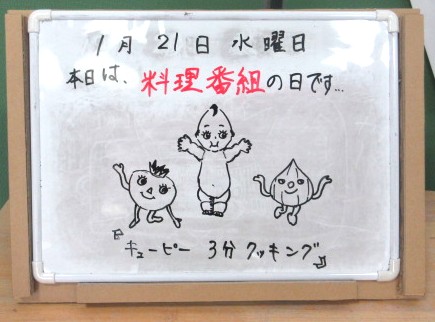 1月 21日 水曜日
本日は、料理番組の日です…
『キューピー 3分クッキング』